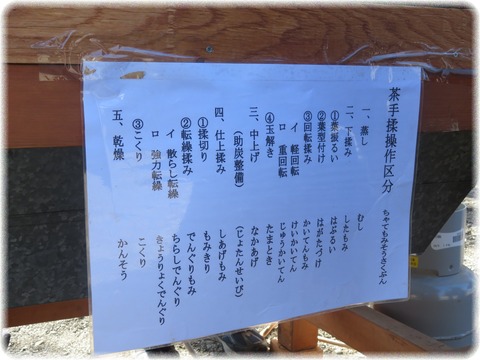 茶手揉操作区分 ちゃてもみそうさくぶん
一、蒸し むし
二、下揉み したもみ
①葉振るい はぶるい
②葉型付け はがたづけ
③回転揉み かいてんもみ
イ 軽回転 けいかいてん
ロ 重回転 じゅうかいてん
④玉解き たまとき
三、中上げ なかあげ
(助炭整備) (じょたんせいび)
四、仕上揉み しあげもみ
①揉切り もみきり
②転繰揉み でんぐりもみ
イ 散らし転繰 ちらしでんぐり
ロ 強力転繰 きょうりょくでんぐり
③こくり こくり
五、乾燥 かんそう